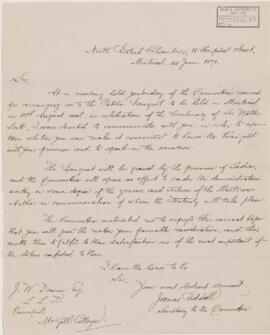 North British Chambers, 11 Hospital Street,
Montreal, 1st June 1871.
Sir,
At a meeting held yesterday of the Committee named
for arranging as to the Public Banquet to be held in Montreal
on 15th August next, in celebration of the Centenary of Sir Walter
Scott, I was directed to communicate with you, in order to ascer-
tain whether you can make it convenient to honor the Banquet
with your presence and to speak on the occasion.
The Banquet will be graced by the presence of Ladies,
and the Committee will spare no effort to render the demonstration
worthy in some degree of the genius and virtues of the illustrious
Author in commemoration of whom the Festivity will take place.
The Committee instructed me to express their earnest hope
that you will give the matter your favorable consideration, and thus
enable them to fulfil to their satisfaction one of the most important of
the duties confided to them.
I have the honor to be
Sir,
Your most obedient servant,
James
Secretary to the Committee
J. W. Dawson Esq.
L. L. D.
Principal
McGill College